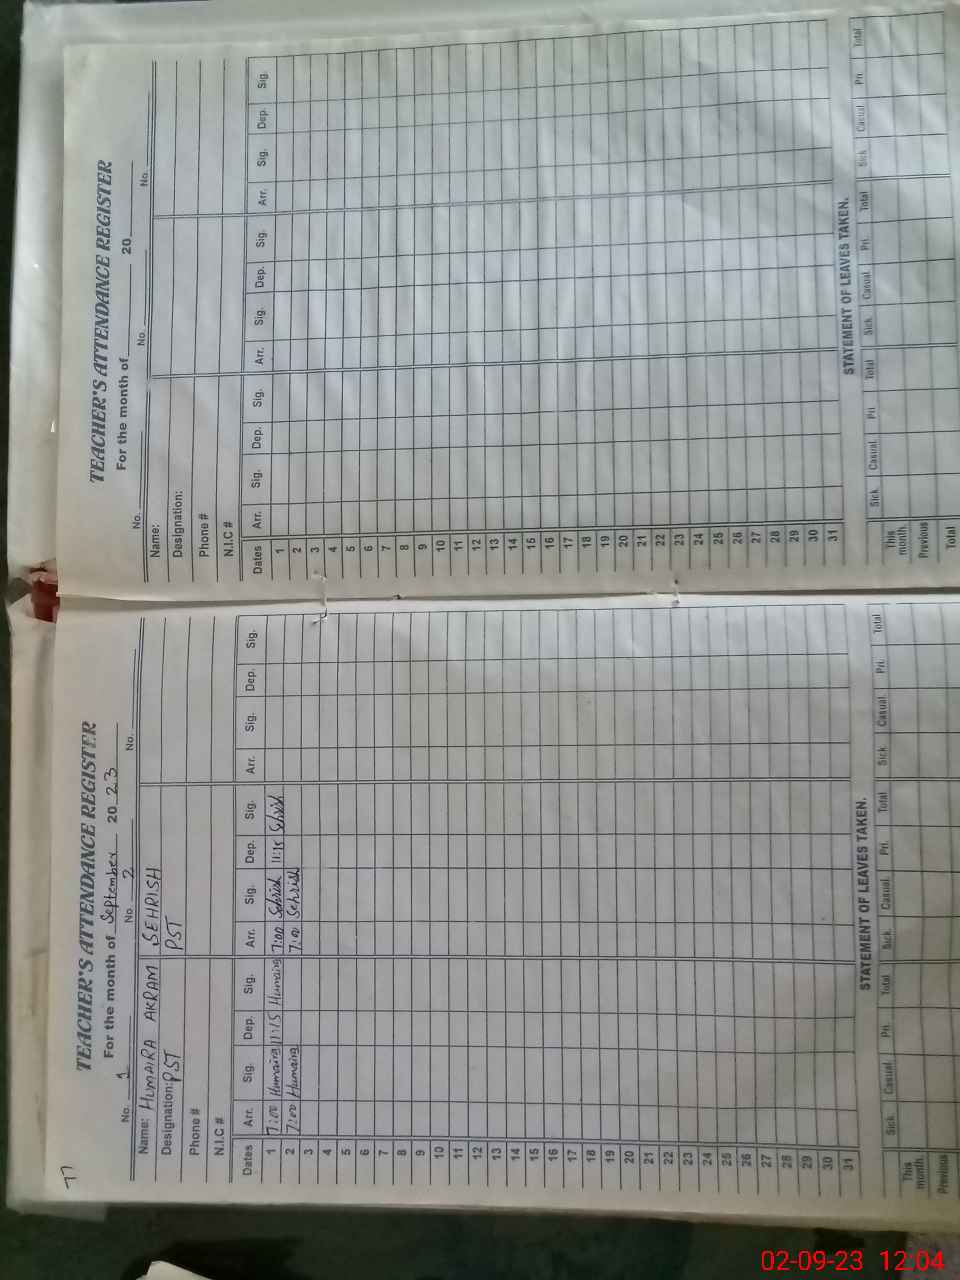 77
TEACHER'S ATTENDANCE REGISTER
For the month of September 20 23
No. 1 No. 2 No.
Name: HUMAIRA AKRAM SEHRISH
Designation: PST PST
Phone #
N.I.C #
Dates Arr. Sig. Dep. Sig. Arr. Sig. Dep. Sig. Arr. Sig. Dep. Sig.
1 7:00 Humaira 11:15 Humaira 7:00 Sehrish 11:15 Sehrish
2 7:00 Humaira 7:00 Sehrish
3
4
5
6
7
8
9
10
11
12
13
14
15
16
17
18
19
20
21
22
23
24
25
26
27
28
29
30
31
STATEMENT OF LEAVES TAKEN.
Sick. Casual. Pri. Total Sick. Casual. Pri. Total Sick Casual. Pri. Total
This month.
Previous
TEACHER'S ATTENDANCE REGISTER
For the month of 20
No. No. No.
Name:
Designation:
Phone #
N.I.C #
Dates Arr. Sig. Dep. Sig. Arr. Sig. Dep. Sig. Arr. Sig. Dep. Sig.
1
2
3
4
5
6
7
8
9
10
11
12
13
14
15
16
17
18
19
20
21
22
23
24
25
26
27
28
29
30
31
STATEMENT OF LEAVES TAKEN.
Sick. Casual. Pri Total Sick. Casual. Pri. Total Sick Casual Pri Total
This month.
Previous
Total
02-09-23 12:04